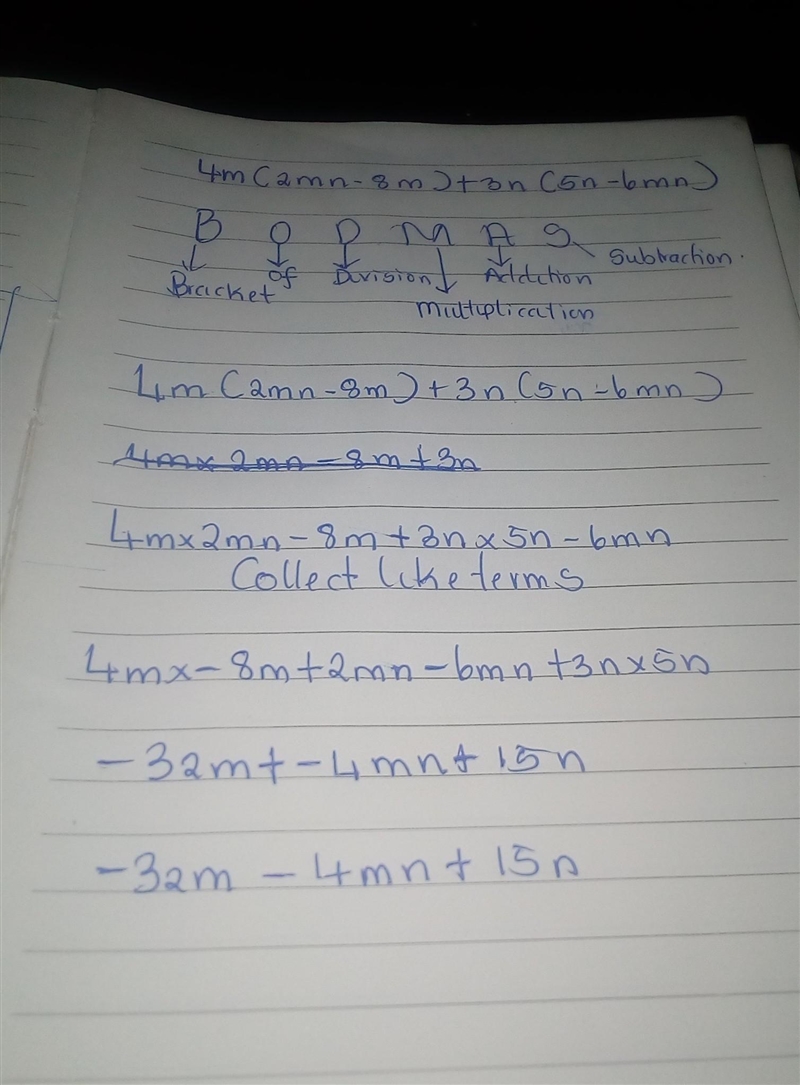 4m(2mn-8m)+3n(5n-6mn)
B O D M A S
Bracket of Division Multiplication Addction Subtraction.
4m(2mn-8m)+3n(5n-6mn)
4mx2mn-8m+3n
4mx2mn-8m+3nx5n-6mn
Collect like terms
4mx-8m+2mn-6mn+3nx5n
-32m+-4mn+15n
-32m-4mn+15n